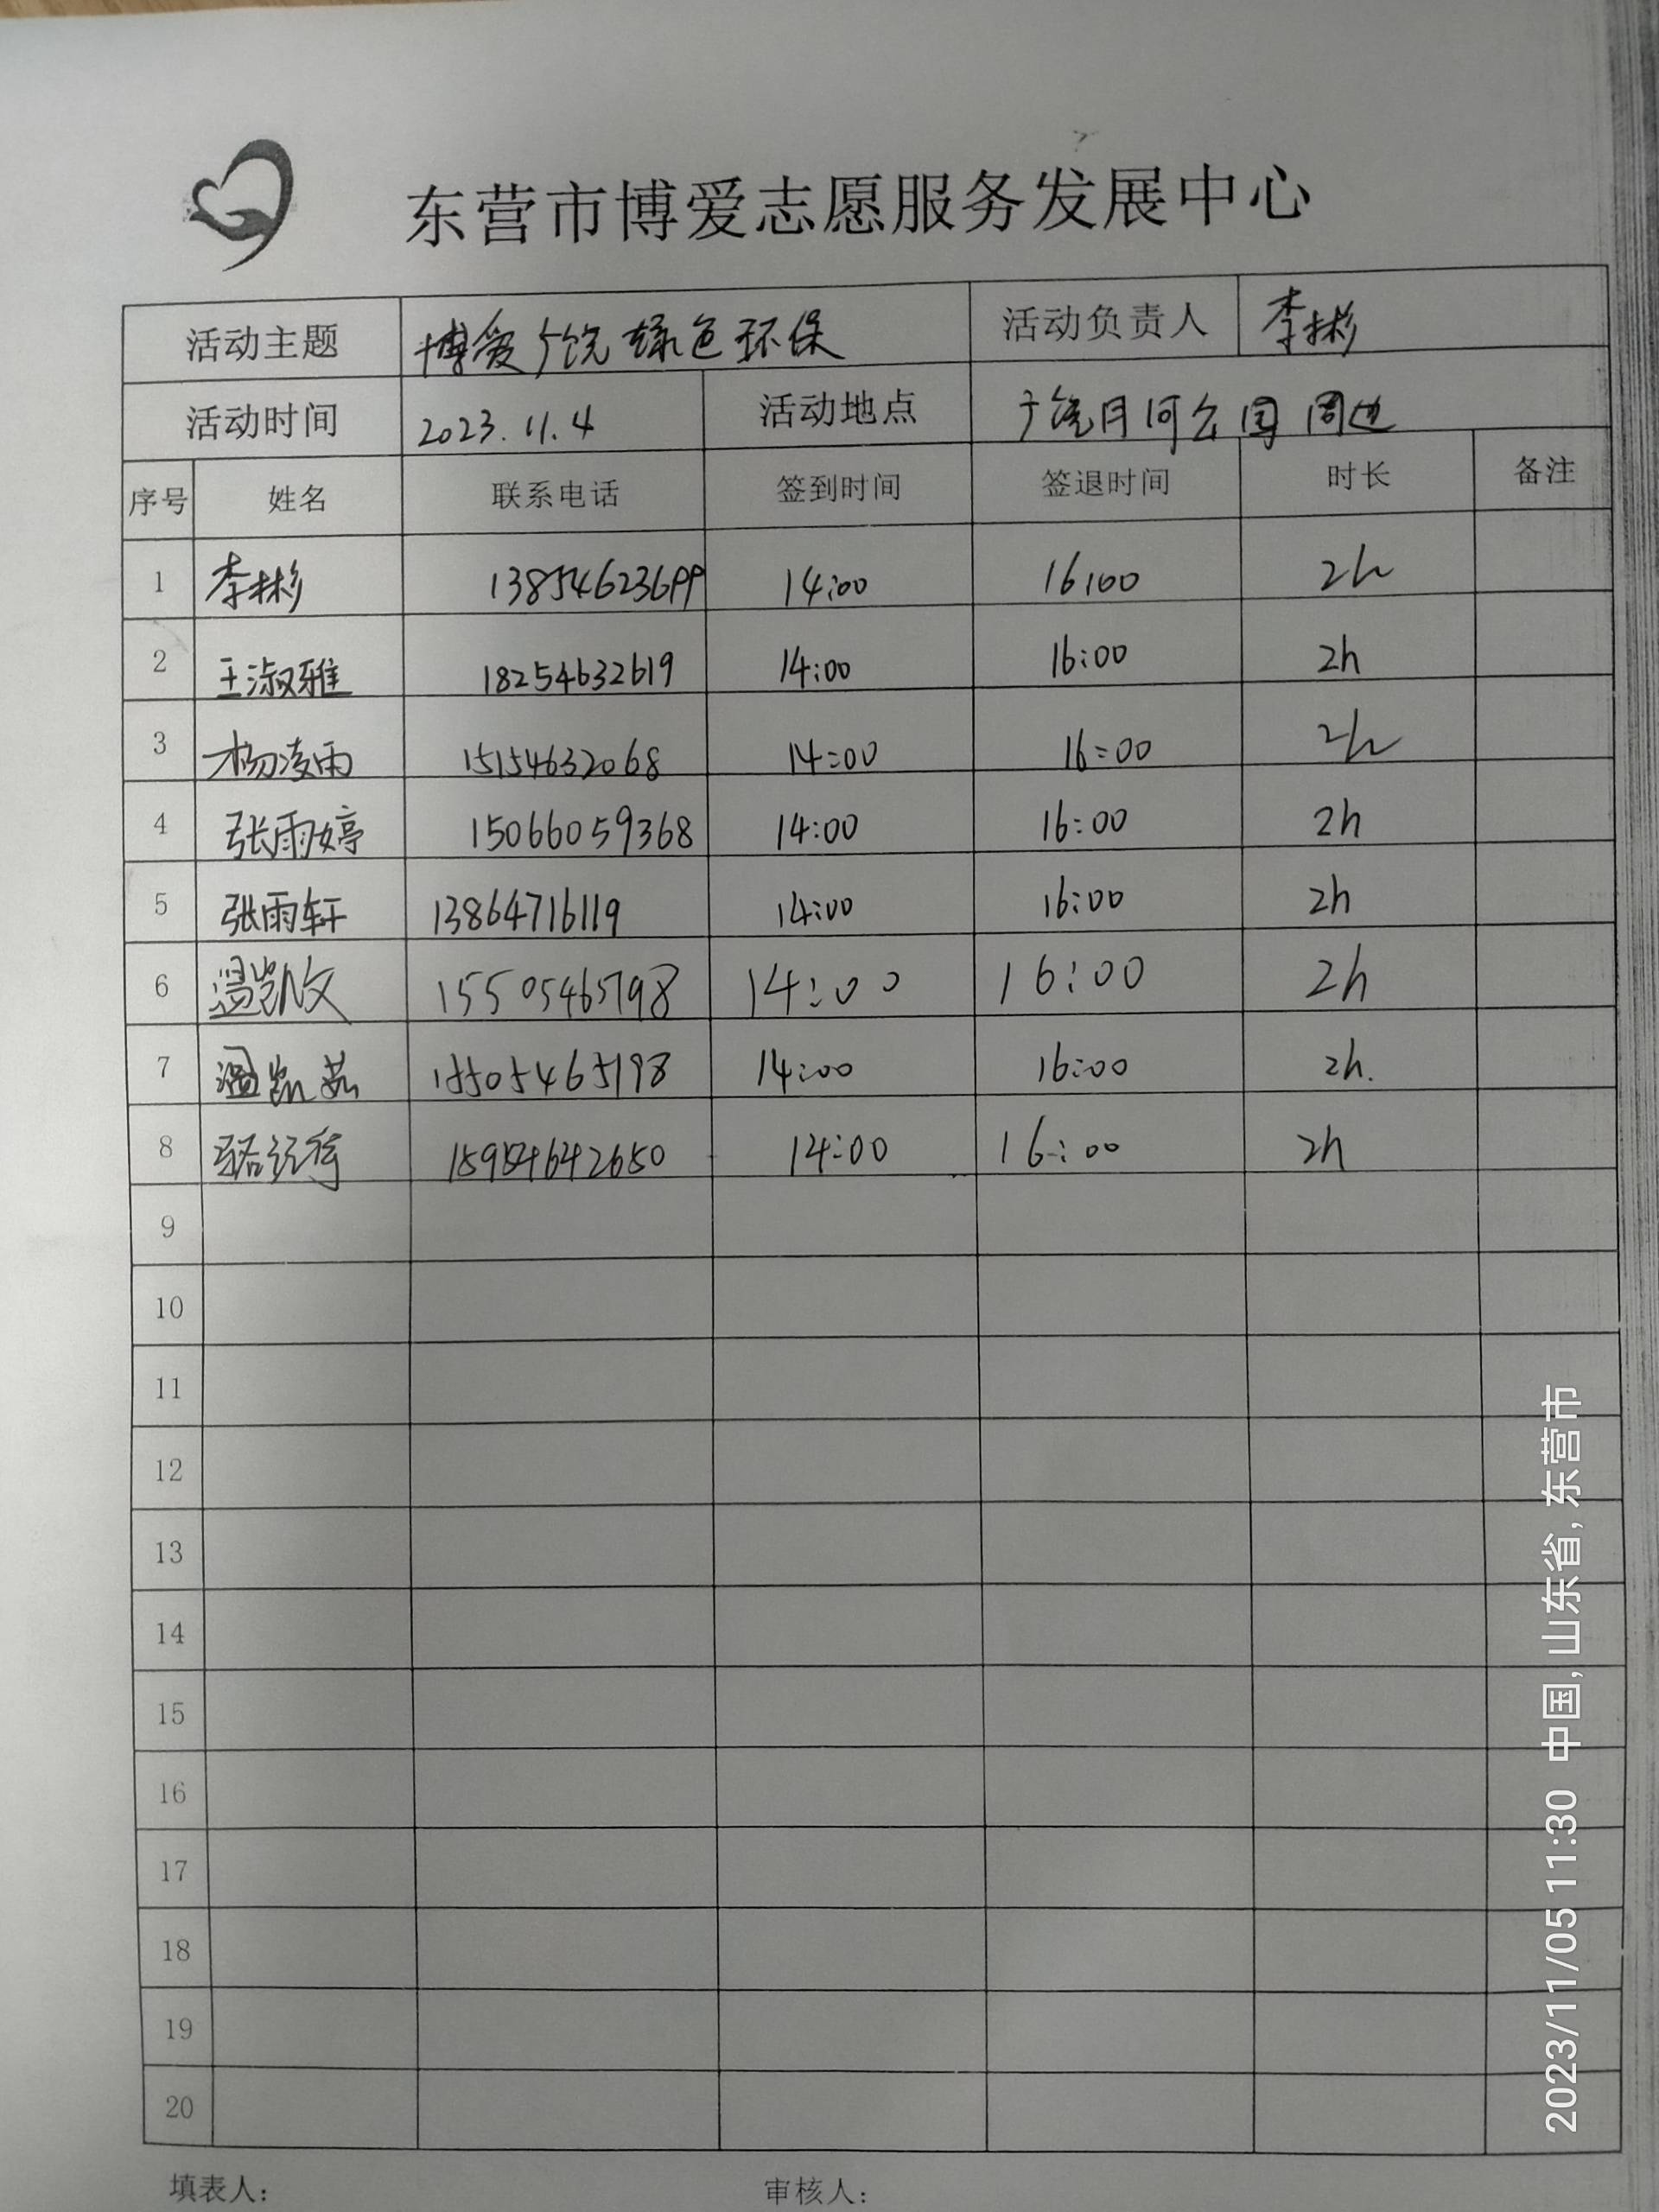 东营市博爱志愿服务发展中心
活动主题 博爱广饶 绿色环保 活动负责人 李彬
活动时间 2023.11.4 活动地点 广饶月河公园周边
序号 姓名 联系电话 签到时间 签退时间 时长 备注
1 李彬 13854623699 14:00 16:00 2h
2 王淑雅 18254632619 14:00 16:00 2h
3 杨凌雨 15154632068 14:00 16:00 2h
4 张雨婷 15066059368 14:00 16:00 2h
5 张雨轩 13864716119 14:00 16:00 2h
6 温凯文 15505465198 14:00 16:00 2h
7 温凯茹 15505465198 14:00 16:00 2h.
8 14:00 16:00 2h
9
10
11
12
13
14
15
16
17
18
19
20
填表人: 审核人:
2023/11/05 11:30 中国,山东省,东营市